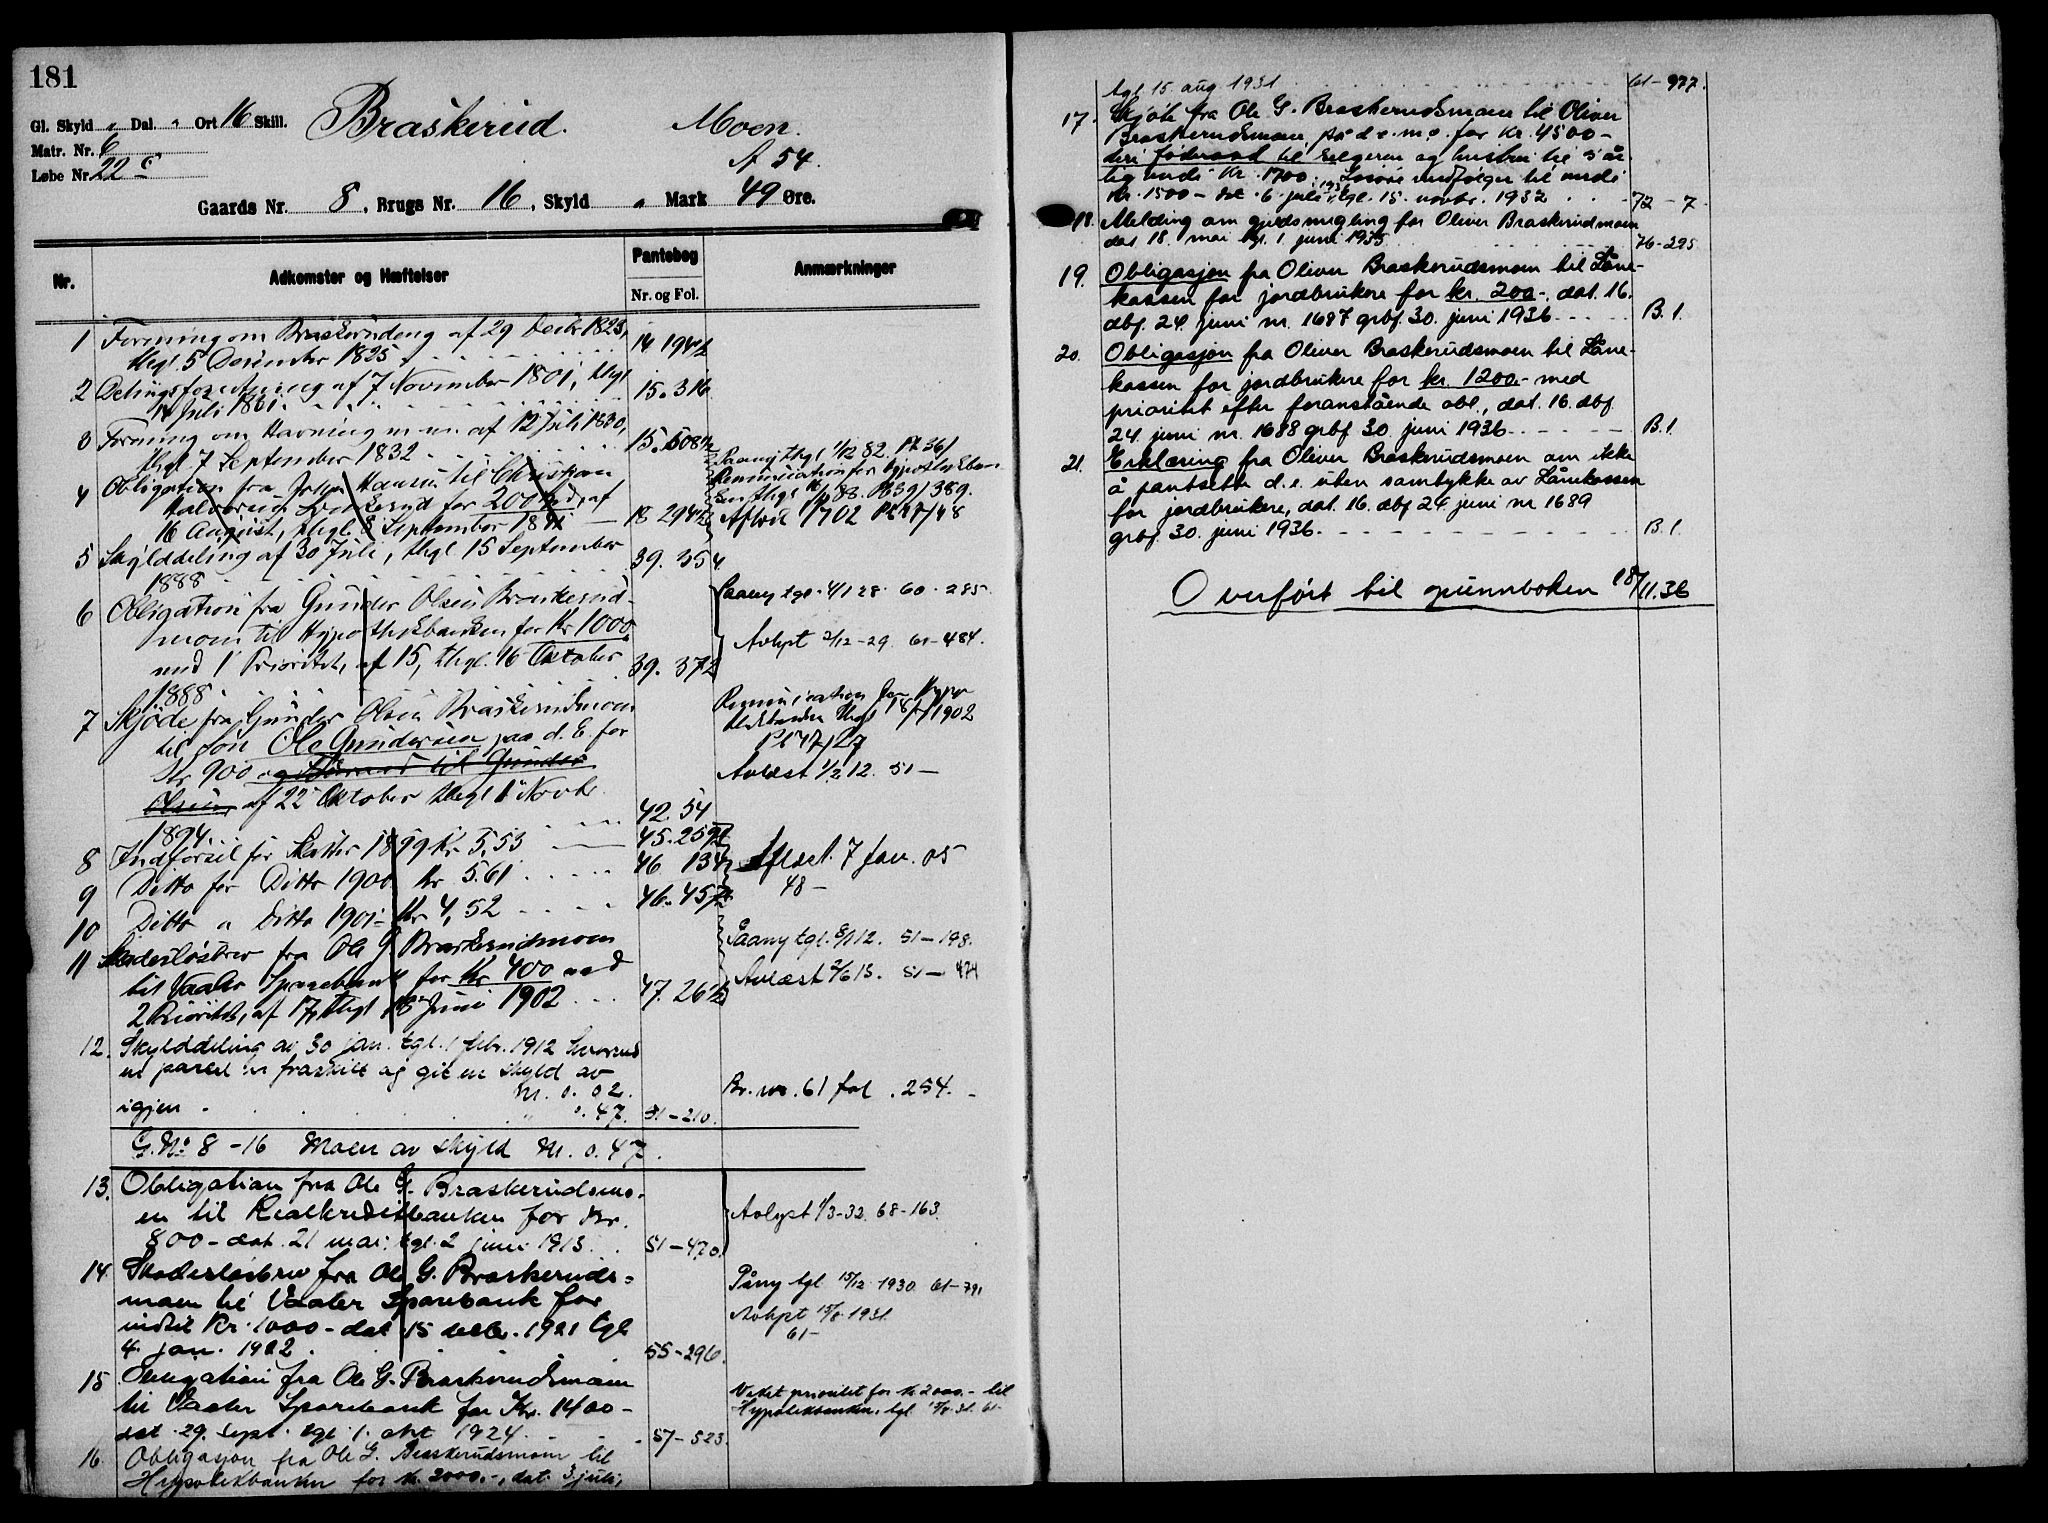 181
Gl. Skyld " Dal. " Ort 16 Skill.
Braskerud. Moen.
Matr. Nr. 6
A 54.
Løbe Nr. 22 c
Gaards Nr. 8, Brugs Nr. 16, Skyld " Mark 49 Øre.
Nr. Adkomster og Hæftelser Pantebog Anmærkninger
Nr. og Fol.
1 Forening om Braskerudeng af 29 Decbr 1823,
thgl 5 December 1825 14 194 1/2
2 Delingsforretning af 7 November 1801, thgl
14 Juli 1801. 15. 316
3 Forening om Havning m. m. af 12 Juli 1830,
thgl 7 September 1832 15. 508 1/2
4 Obligation fra John Hansen til Christian
Halvorsen Braskerud for 200 af
16 August, thgl 8 September 1841 18 294 1/2
Paany thgl 1/12 82. Pb 36/
Renunciation for Hypothekban-
ken thgl 88. Pb 39/389.
Aflæst 1/7 02 Pb 47/48
5 Skylddeling af 30 Juli, thgl 15 September
1888 39. 354
6 Obligation fra Gunder Olsen Braskerud-
moen til Hypothekbanken for Kr 1000
med 1 Prioritet, af 15, thgl. 16 Oktober
1888 39. 372
Paany tgl. 4/1 28 60-285.
Avlyst 2/12-29. 61-484.
7 Skjøde fra Gunder Olsen Braskerudmoen
til Søn Ole Gundersen paa d. E. for
Kr 900 og Føderaad til Gunder
Olsen, af 22 Oktober thgl 1 Novbr.
1894. 42. 54
Renunciation for Hypo-
thekbanken thgl 18/7 1902
Pb 47/27
Avlæst 1/2 12. 51-
8 Indførsel for Skatter 1899 Kr 5,53 45. 259
9 Ditto for Ditto 1900 Kr 5.61 46 134
10 Ditto " Ditto 1901 Kr 4,52 46. 457
Aflæst. 7 Jan. 05
48-
11 Skadesløsbrev fra Ole G. Braskerudmoen
til Vaaler Sparebank for Kr 400 med
2 Prioritet, af 17, thgl 18 Juni 1902 47. 26
Paany tgl. 6/1 12. 51-198.
Avlæst 2/6 13. 51-474
12. Skylddeling av 30 jan. tgl. 1 febr. 1912 hvorved
en parcel er fraskilt og git en skyld av
M. 0.02.
igjen " 0.47. 51-210.
Br. no. 61 fol. 254.-
G. No 8-16 Moen av skyld M. 0.47.
13. Obligation fra Ole G. Braskerudsmo-
en til Realkreditbanken for Kr.
800- dat. 21 mai. tgl. 2 juni 1913. 51-470.
Avlyst 1/3-32. 68-163.
14. Skadesløsbrev fra Ole G. Braskeruds-
moen til Vaaler Sparebank for
indtil Kr. 1000- dat 15 decbr. 1921 tgl
4. jan. 1922. 55-296.
Påny tgl 15/12 1930. 61-791
Avlyst 15/8 1931.
61-
15 Obligation fra Ole G. Braskerudsmoen
til Vaaler Sparebank for Kr. 1400-
dat. 29. sept. tgl. 1. okt 1924. 57-523.
Veket prioritet for kr 2000.- til
Hypotekbanken. tgl. 15/8 31. 61-
16 Obligasjon fra Ole G. Braskerudsmoen til
Hypotekbanken for kr. 2000.-, dat. 3 juli,
tgl. 15. aug 1931 61-977.
17. Skjøte fra Ole G. Braskerudsmoen til Oliver
Braskerudsmoen på d. e. m. o. for kr. 4500-
deri føderaad til selgeren og hustru til 5 år-
lig verdi kr. 1700. Losøre medfølger til verdi
kr. 1500- dat. 6. juli 1932 tgl. 15. novbr. 1932 72-7.
18. Melding om gjeldsmegling for Oliver Braskerudmoen
dat 18. mai tgl. 1. juni 1935 76-295
19. Obligasjon fra Oliver Braskerudsmoen til Låne-
kassen for jordbrukere for kr. 200.-, dat. 16.
dbf. 24. juni nr. 1687 grbf. 30. juni 1936 B. 1.
20. Obligasjon fra Oliver Braskerudsmoen til Låne-
kassen for jordbrukere for kr. 1200.- med
prioritet efter foranstående obl., dat. 16. dbf.
24. juni nr. 1688 grbf. 30. juni 1936 B. 1.
21. Erklæring fra Oliver Braskerudsmoen om ikke
å pantsette d. e. uten samtykke av Lånekassen
for jordbrukere, dat. 16. dbf. 24. juni nr 1689
grbf. 30. juni 1936 B. 1.
Overført til grunnboken 18/11.36